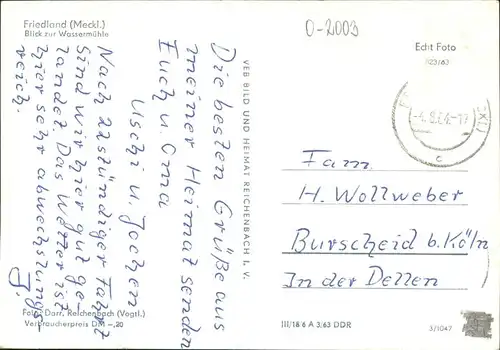 Friedland (Meckl.)
Blick zur Wassermühle
O-2003
Echt Foto
Die besten Grüße aus
meiner Heimat senden
Euch u. Oma
Uschi u. Jochen
Nach 22stündiger Fahrt
sind wir hier gut ge-
landet. Das Wetter ist
hier sehr abwechslungs
reich.
VEB BILD UND HEIMAT REICHENBACH I. V.
Fam.
H. Wollweber
Burscheid b. Köln
In der Dellen
Foto: Darr, Reichenbach (Vogtl.)
Verbraucherpreis DM -,20
III/18/6 A 3/63 DDR
3/1047